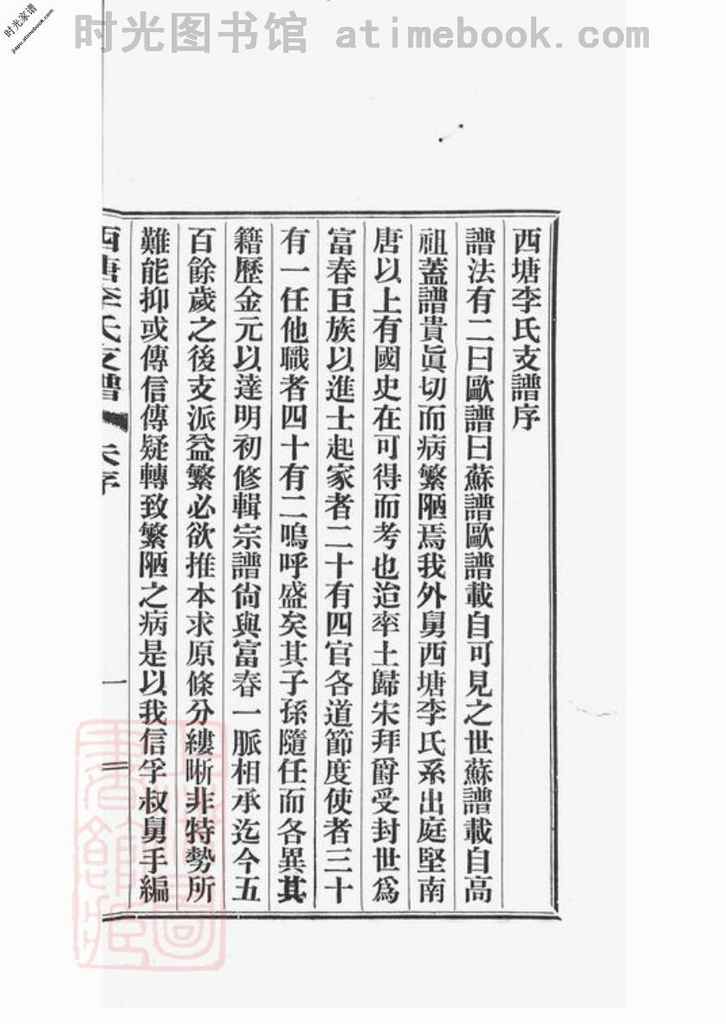 时光图书馆 atimebook.com
时光家谱
jiapu.atimebook.com
西塘李氏支譜序
譜法有二曰歐譜曰蘇譜歐譜載自可見之世蘇譜載自高
祖蓋譜貴眞切而病繁陋焉我外舅西塘李氏系出庭堅南
唐以上有國史在可得而考也迨率土歸宋拜爵受封世爲
富春巨族以進士起家者二十有四官各道節度使者三十
有一任他職者四十有二嗚呼盛矣其子孫隨任而各異其
籍歷金元以達明初修輯宗譜尙與富春一脈相承迄今五
百餘歲之後支派益繁必欲推本求原條分縷晰非特勢所
難能抑或傳信傳疑轉致繁陋之病是以我信孚叔舅手編
西塘李氏支譜 序 一